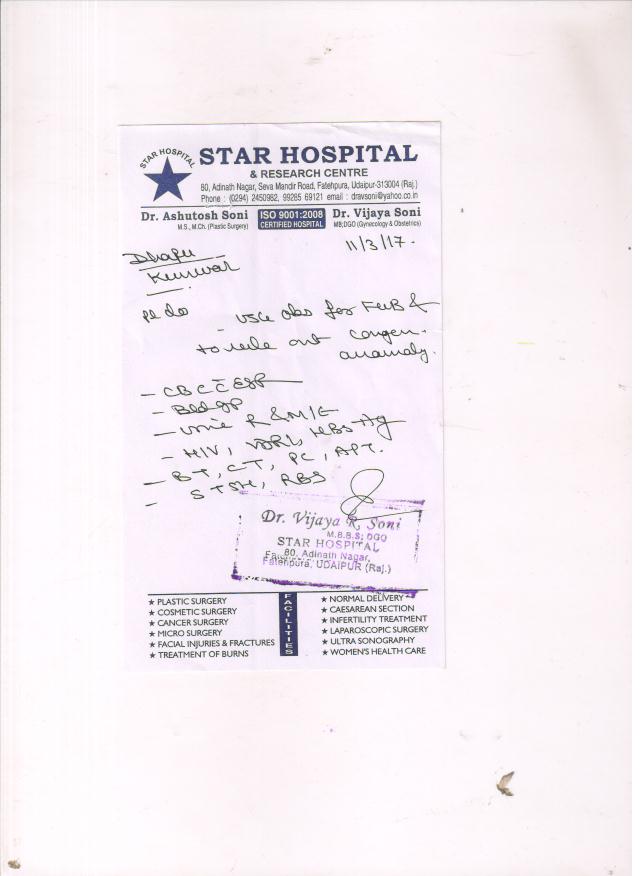 STAR HOSPITAL
STAR HOSPITAL
& RESEARCH CENTRE
80, Adinath Nagar, Seva Mandir Road, Fatehpura, Udaipur-313004 (Raj.)
Phone : (0294) 2450982, 99285 69121 email : dravsoni@yahoo.co.in
Dr. Ashutosh Soni ISO 9001:2008 Dr. Vijaya Soni
M.S., M.Ch. (Plastic Surgery) CERTIFIED HOSPITAL MB;DGO (Gynecology & Obstetrics)
11/3/17.
Dhapu
Kunwar
Pl do - USG obs for FWB &
to rule out congen.
anomaly.
- CBC c̄ ESR
- Bld gp
- Urine R & M/E
- HIV, VDRL, HBsAg
- BT, CT, PC, APT.
- S TSH, RBS
Dr. Vijaya R. Soni
M.B.B.S; DGO
STAR HOSPITAL
80, Adinath Nagar,
Fatehpura, UDAIPUR (Raj.)
FACILITIES
★ PLASTIC SURGERY
★ COSMETIC SURGERY
★ CANCER SURGERY
★ MICRO SURGERY
★ FACIAL INJURIES & FRACTURES
★ TREATMENT OF BURNS
★ NORMAL DELIVERY
★ CAESAREAN SECTION
★ INFERTILITY TREATMENT
★ LAPAROSCOPIC SURGERY
★ ULTRA SONOGRAPHY
★ WOMEN'S HEALTH CARE